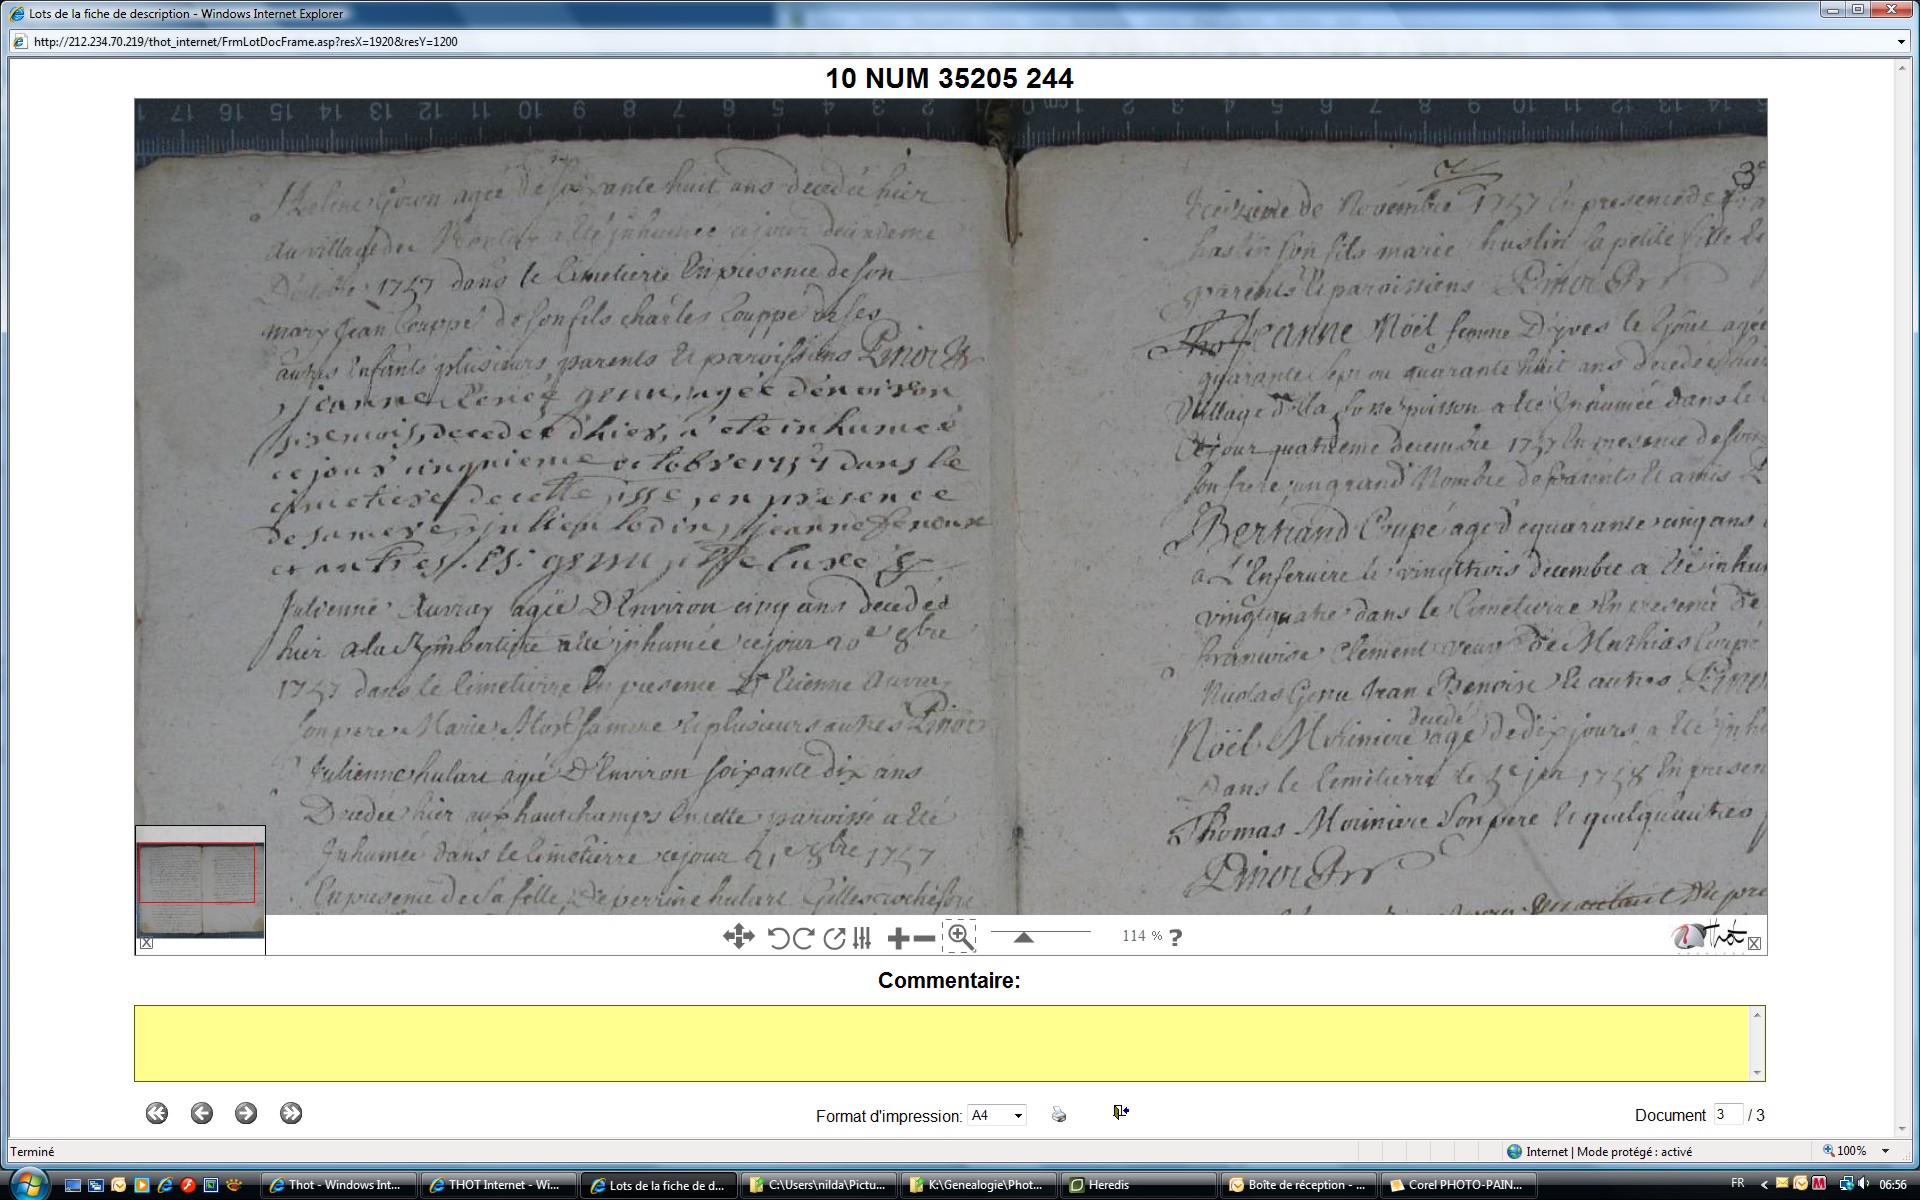 Lots de la fiche de description - Windows Internet Explorer
http://212.234.70.219/thot_internet/FrmLotDocFrame.asp?resX=1920&resY=1200
10 NUM 35205 244
17 16 15 14 13 12 11 10 9 8 7 6 5 4 3 2 1 0 cm 1 2 3 4 5 6 7 8 9 10 11 12 13 14 15
Goron agée de soixante huit ans decedée hier
au village des a été inhumée ce jour deuxieme
1757 dans le Cimetierre En presence de son
mary Jean Couppé de son fils charles Couppé de ses
autres Enfants plusieurs parents et paroissiens Pinot
jeanne Renée genu, agée d'environ
six mois, decedée d'hier, a eté inhumée
ce jour cinquieme octobre 1757 dans le
cimetiere de cette psse, en presence
de sa mere, julien lodin, jeanne
et autres. P.S. genu
Julienne Auvray agée D'Environ cinq ans decedée
hier a la Rimbertiere a été inhumée ce jour 20e 8bre
1757 dans le Cimetierre En presence D'Etienne Auvray
son pere Marie sa mere et plusieurs autres Pinot
Julienne hulart agée D'Environ soixante dix ans
Decedée hier aux hautschamps En cette paroisse a été
Inhumée dans le Cimetierre ce jour 21e 8bre 1757
En presence de sa fille, De perrine hulart Gilles
3e
treizieme de Novembre 1757 En presence de
haslin son fils marie huslin sa petite fille et
parents et paroissiens Pinot
Jeanne Nöel femme D'yves le agée
quarante sept ou quarante huit ans decedée hier
village de la fosse poisson a été Inhumée dans le
Ce jour quatrieme decembre 1757 En presence de son
son frere, un grand Nombre de parents et amis
Bertrand Coupé agé de quarante cinq ans
a L'Enfernire le vingt trois decembre a été inhu
vingt quatre dans le Cimetierre En presence de
francoise Clement veuve de Mathias Coupé
Nicolas Genu Jean Benoist et autres Pinot
Nöel Moriniere decedé agé de dix jours a été inh
Dans le Cimetierre le 5e jer 1758 En presen
Thomas Moriniere son pere et quelqu'autres
Pinot
114 % ?
Thot
Commentaire:
Format d'impression: A4
Document 3 / 3
Terminé
Internet | Mode protégé : activé
100%
Thot - Windows Int...
THOT Internet - Wi...
Lots de la fiche de d...
C:\Users\nilda\Pictu...
K:\Genealogie\Phot...
Heredis
Boîte de réception - ...
Corel PHOTO-PAIN...
FR
06:56